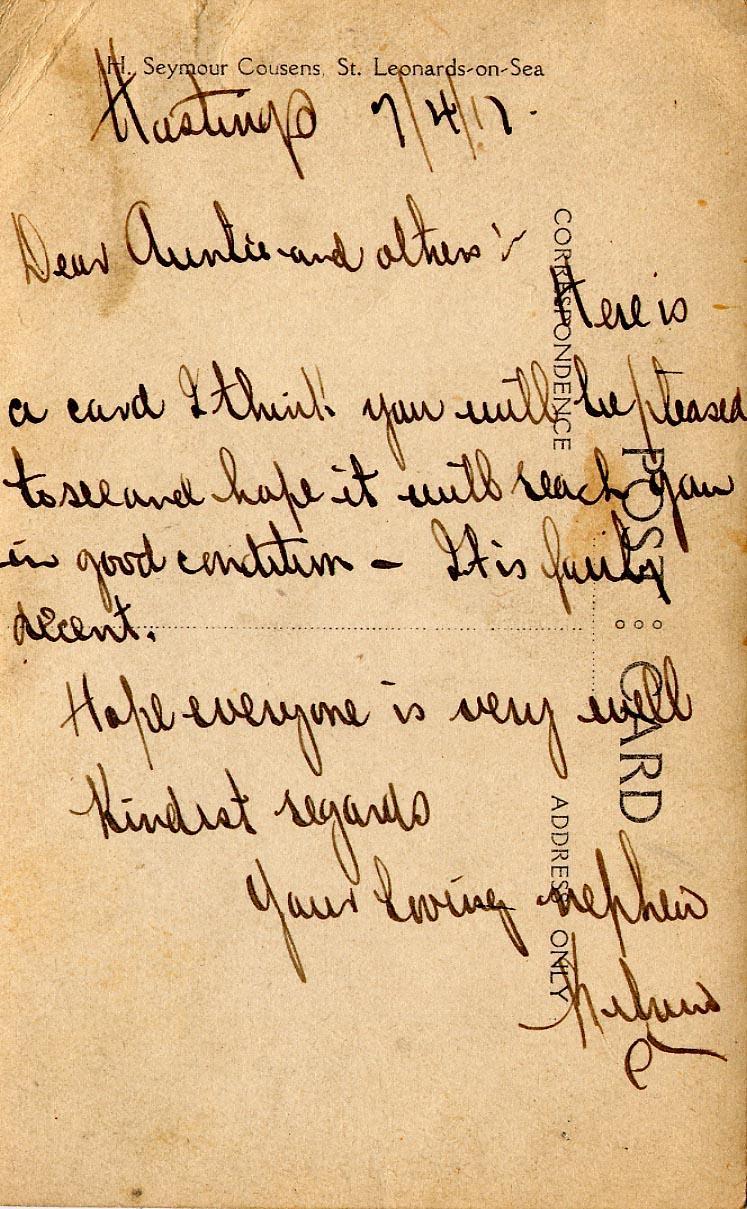 H. Seymour Cousens, St. Leonards-on-Sea
Hastings 7/4/17.
Dear Auntie and others :-
Here is
a card I think you will be pleased
to see and hope it will reach you
in good condition - It is fairly
decent.
Hope everyone is very well
Kindest regards
Your loving nephew
CORRESPONDENCE
POST CARD
ADDRESS ONLY